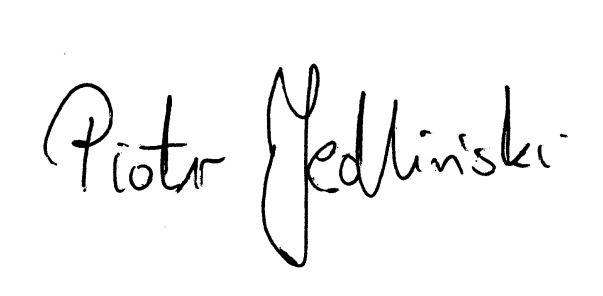 Piotr Jedliński